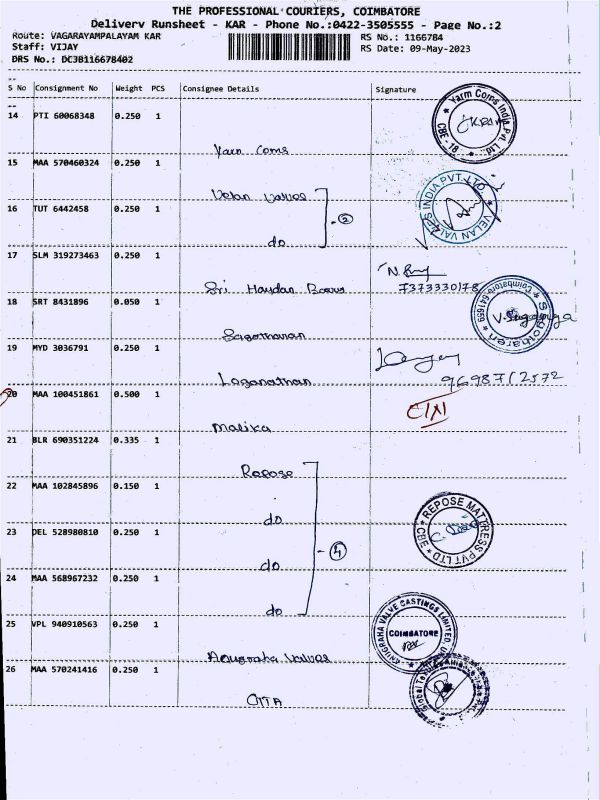 THE PROFESSIONAL COURIERS, COIMBATORE
Delivery Runsheet - KAR - Phone No.:0422-3505555 - Page No.:2
Route: VAGARAYAMPALAYAM KAR RS No.: 1166784
Staff: VIJAY RS Date: 09-May-2023
DRS No.: DCJB116678402
S No Consignment No Weight PCS Consignee Details Signature
14 PTI 60068348 0.250 1
Yarn Coms
Yarn Coms India Pvt. Ltd. CBE - 18
15 MAA 570460324 0.250 1
Velan Valves
VELAN VALVES INDIA PVT. LTD.
16 TUT 6442458 0.250 1
do
2
17 SLM 319273463 0.250 1
Sri
7373330178
18 SRT 8431896 0.050 1
Sagotharan
Sagotharan Coimbatore 641659
19 MYD 3036791 0.250 1
Loganathan
9698712572
20 MAA 100451861 0.500 1
Malika
21 BLR 690351224 0.335 1
Repose
22 MAA 102845896 0.150 1
do
23 DEL 528980810 0.250 1
do
4
REPOSE MATTRESS PVT LTD CBE
24 MAA 568967232 0.250 1
do
25 VPL 940910563 0.250 1
Anugraha Valves
ANUGRAHA VALVE CASTINGS LIMITED
COIMBATORE
26 MAA 570241416 0.250 1
GTTA